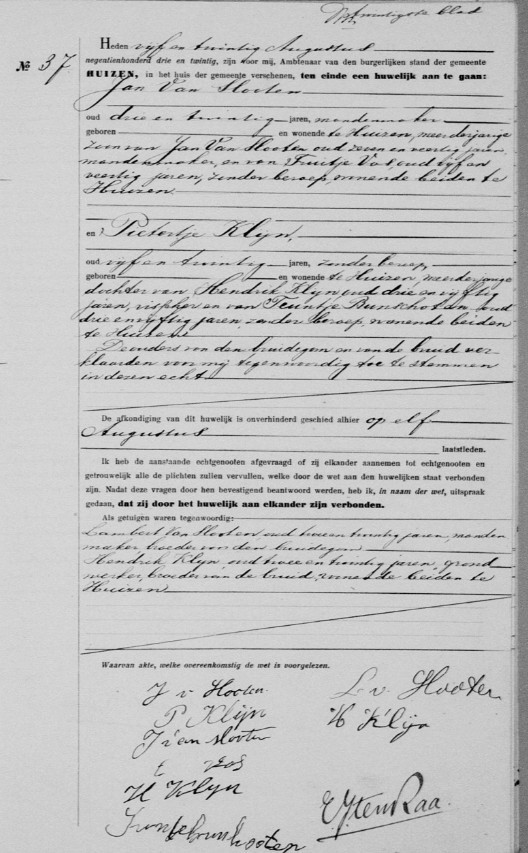 blad
№ 37
Heden vijf en twintig Augustus
negentienhonderd drie en twintig, zijn voor mij, Ambtenaar van den burgerlijken stand der gemeente
HUIZEN, in het huis der gemeente verschenen, ten einde een huwelijk aan te gaan:
Jan Van Slooten
oud drie en twintig jaren, mandenmaker
geboren en wonende te Huizen, meerderjarige
zoon van Jan Van Slooten oud zeven en veertig jaren,
mandenmaker, en van Tuitje Vos, oud vijf en
veertig jaren, zonder beroep, wonende beiden te
Huizen.
en Pietertje Klijn,
oud vijf en twintig jaren, zonder beroep,
geboren en wonende te Huizen, meerderjarige
dochter van Hendrik Klijn oud drie en vijftig
jaren, en van Teuntje Bunschoten oud
drie en vijftig jaren, zonder beroep, wonende beiden
te Huizen.
De ouders van den bruidegom en van de bruid ver-
klaarden voor mij tegenwoordig toe te stemmen
in dezen echt.
De afkondiging van dit huwelijk is onverhinderd geschied alhier op elf
Augustus
laatstleden.
Ik heb de aanstaande echtgenooten afgevraagd of zij elkander aannemen tot echtgenooten en
getrouwelijk alle de plichten zullen vervullen, welke door de wet aan den huwelijken staat verbonden
zijn. Nadat deze vragen door hen bevestigend beantwoord werden, heb ik, in naam der wet, uitspraak
gedaan, dat zij door het huwelijk aan elkander zijn verbonden.
Als getuigen waren tegenwoordig:
Lambert Van Slooten, oud twee en twintig jaren, manden
maker, broeder van den bruidegom
Hendrik Klijn, oud twee en twintig jaren, grond
werker, broeder van de bruid, wonende beiden te
Huizen.
Waarvan akte, welke overeenkomstig de wet is voorgelezen.
J v Slooten L. v. Slooten
P Klijn H Klijn
J van slooten
t vos
H Klyn
bunschooten
E J ten Raa.